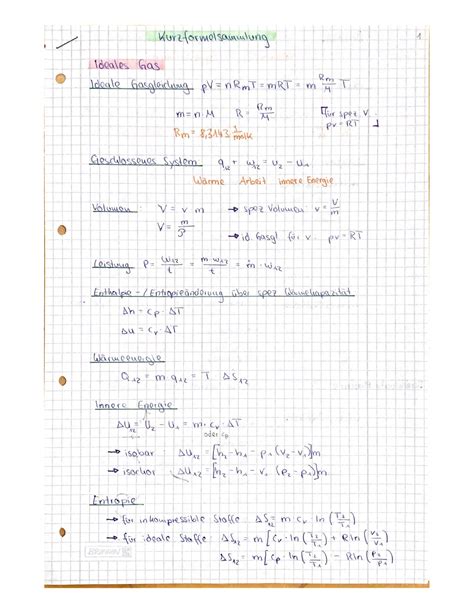 Kurzformelsammlung
1
Ideales Gas
Ideale Gasgleichung pV = n Rm T = mRT = m Rm/M T
m = n·M R = Rm/M für spez. V.
pv = RT
Rm = 8,3143 J/molK
Geschlossenes System q12 + w12 = u2 - u1
Wärme Arbeit innere Energie
Volumen: V = v m → spez Volumen v = V/m
V = m/ρ
→ id. Gasgl für v pv = RT
Leistung P = W12/t = m w12/t = ṁ · w12
Enthalpie-/Entropieänderung über spez Wärmekapazität
Δh = cp · ΔT
Δu = cv · ΔT
Wärmeenergie
Q12 = m q12 = T ΔS12
Innere Energie
ΔU12 = U2 - U1 = m · cv · ΔT
oder cp
→ isobar ΔU12 = [h2 - h1 - p1 (v2 - v1)]m
→ isochor ΔU12 = [h2 - h1 - v1 (p2 - p1)]m
Entropie
→ für inkompressible Stoffe ΔS12 = m cv ln (T2/T1)
→ für ideale Stoffe: ΔS12 = m [cv · ln (T2/T1) + R ln (v2/v1)]
ΔS12 = m [cp · ln (T2/T1) - R ln (p2/p1)]